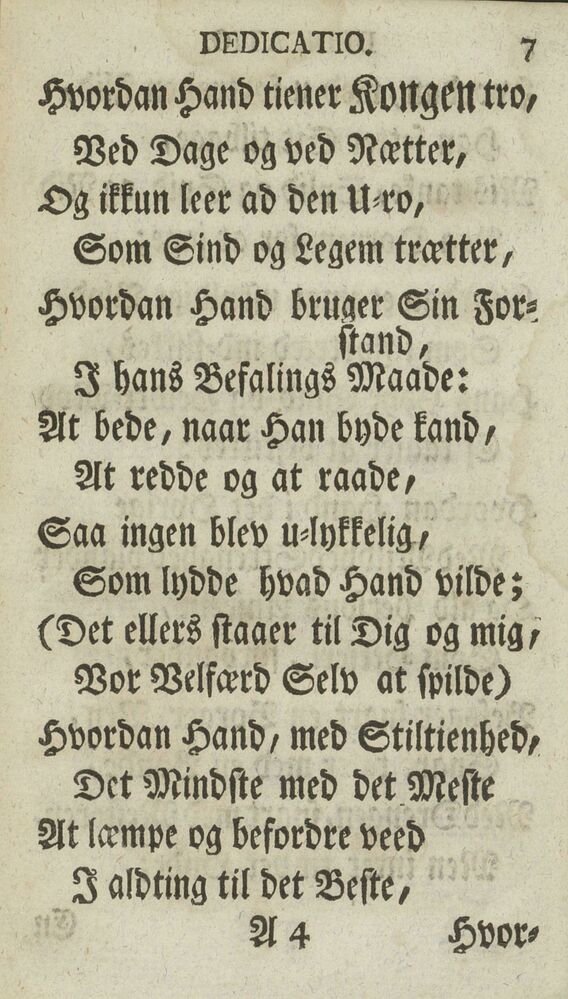 DEDICATIO. 7
Hvordan Hand tiener Kongen tro,
Ved Dage og ved Nætter,
Og ikkun leer ad den U-ro,
Som Sind og Legem trætter,
Hvordan Hand bruger Sin For-
stand,
I hans Befalings Maade:
At bede, naar Han byde kand,
At redde og at raade,
Saa ingen blev u-lykkelig,
Som lydde hvad Hand vilde;
(Det ellers staaer til Dig og mig,
Vor Velfærd Selv at spilde)
Hvordan Hand, med Stiltienhed,
Det Mindste med det Meste
At læmpe og befordre veed
I aldting til det Beste,
A 4 Hvor-